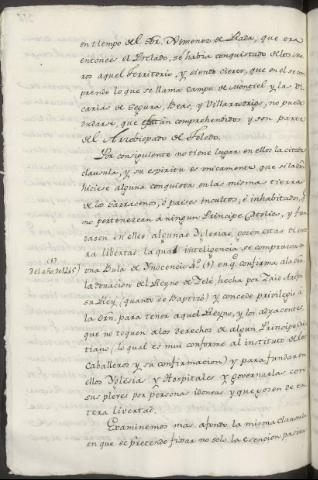 en tiempo del Sr. Ximenez de Rada, que era
entonces el Prelado, se había conquistado de los mo
ros aquel territorio, y siendo cierto, que en el se com
prende lo que se llama campo de Montiel y las Vi
carías de Segura, Beas, y Villarrodrigo, no puede
dudarse, que están comprehendidos y son parte
del Arzobispado de Toledo.
Por consiguiente no tiene lugar en ellos la citada
clausula, y su espiritu es unicamente que si la Orn
hiciese alguna conquista en las mismas tierras
de los Sarracenos, ó países incultos, é inhabitados, q
no pertenezcan á ningun Principe Catolico, y fun
dasen en ellos algunas Yglesias, gocen estas de ente
ra libertad, la qual inteligencia se comprueba con
otra Bula de Ynocencio 4º (1) en q. confirma ala Orn
la donacion del Reyno de Zelé hecha por Zeid
su Rey, (quando se Baptizó) y concede privilegio á
la Orn. para tener aquel Reyno, y los adyacentes,
que no toquen á los derechos de algun Principe Cris
tiano, lo qual es mui conforme al instituto de los
Caballeros y su confirmacion) y para fundar en
ellos Yglesias y Hospitales y governarlas con
sus pleves por personas idoneas y que gocen de en
tera libertad.
Examinemos mas afondo la misma clausula
en que se pretende fixar no solo la esencion pasiva
(1)
Del año de 1245